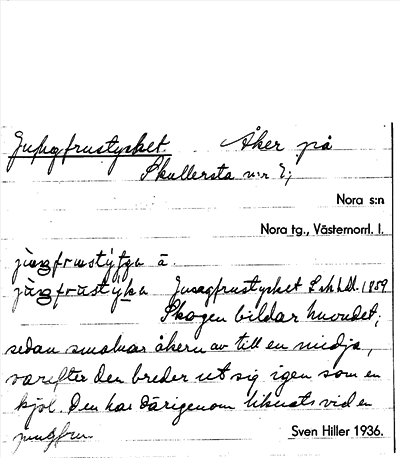 Jungfrustycket. Åker på
Skullersta n:r 2;
Nora s:n
Nora tg., Västernorrl. l.
Jungfrustycket L skh. 1859
Skogen bildar huvudet;
sedan smalnar åkern av till en midja,
varefter den breder ut sig igen som en
kjol. Den har därigenom liknats vid en
jungfru
Sven Hiller 1936.